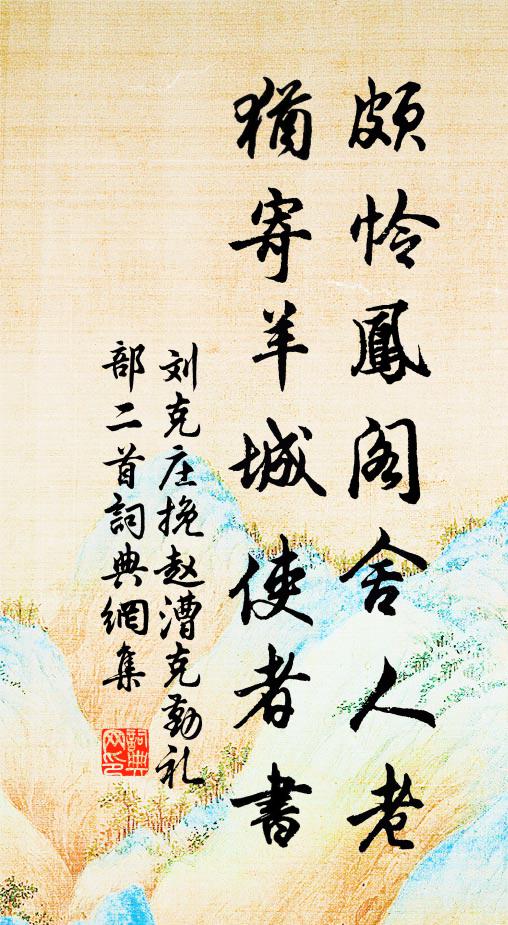 頗怜鳳阁舍人老
猶寄羊城使者書
刘克庄挽赵漕克勤礼
部二首詞典網集